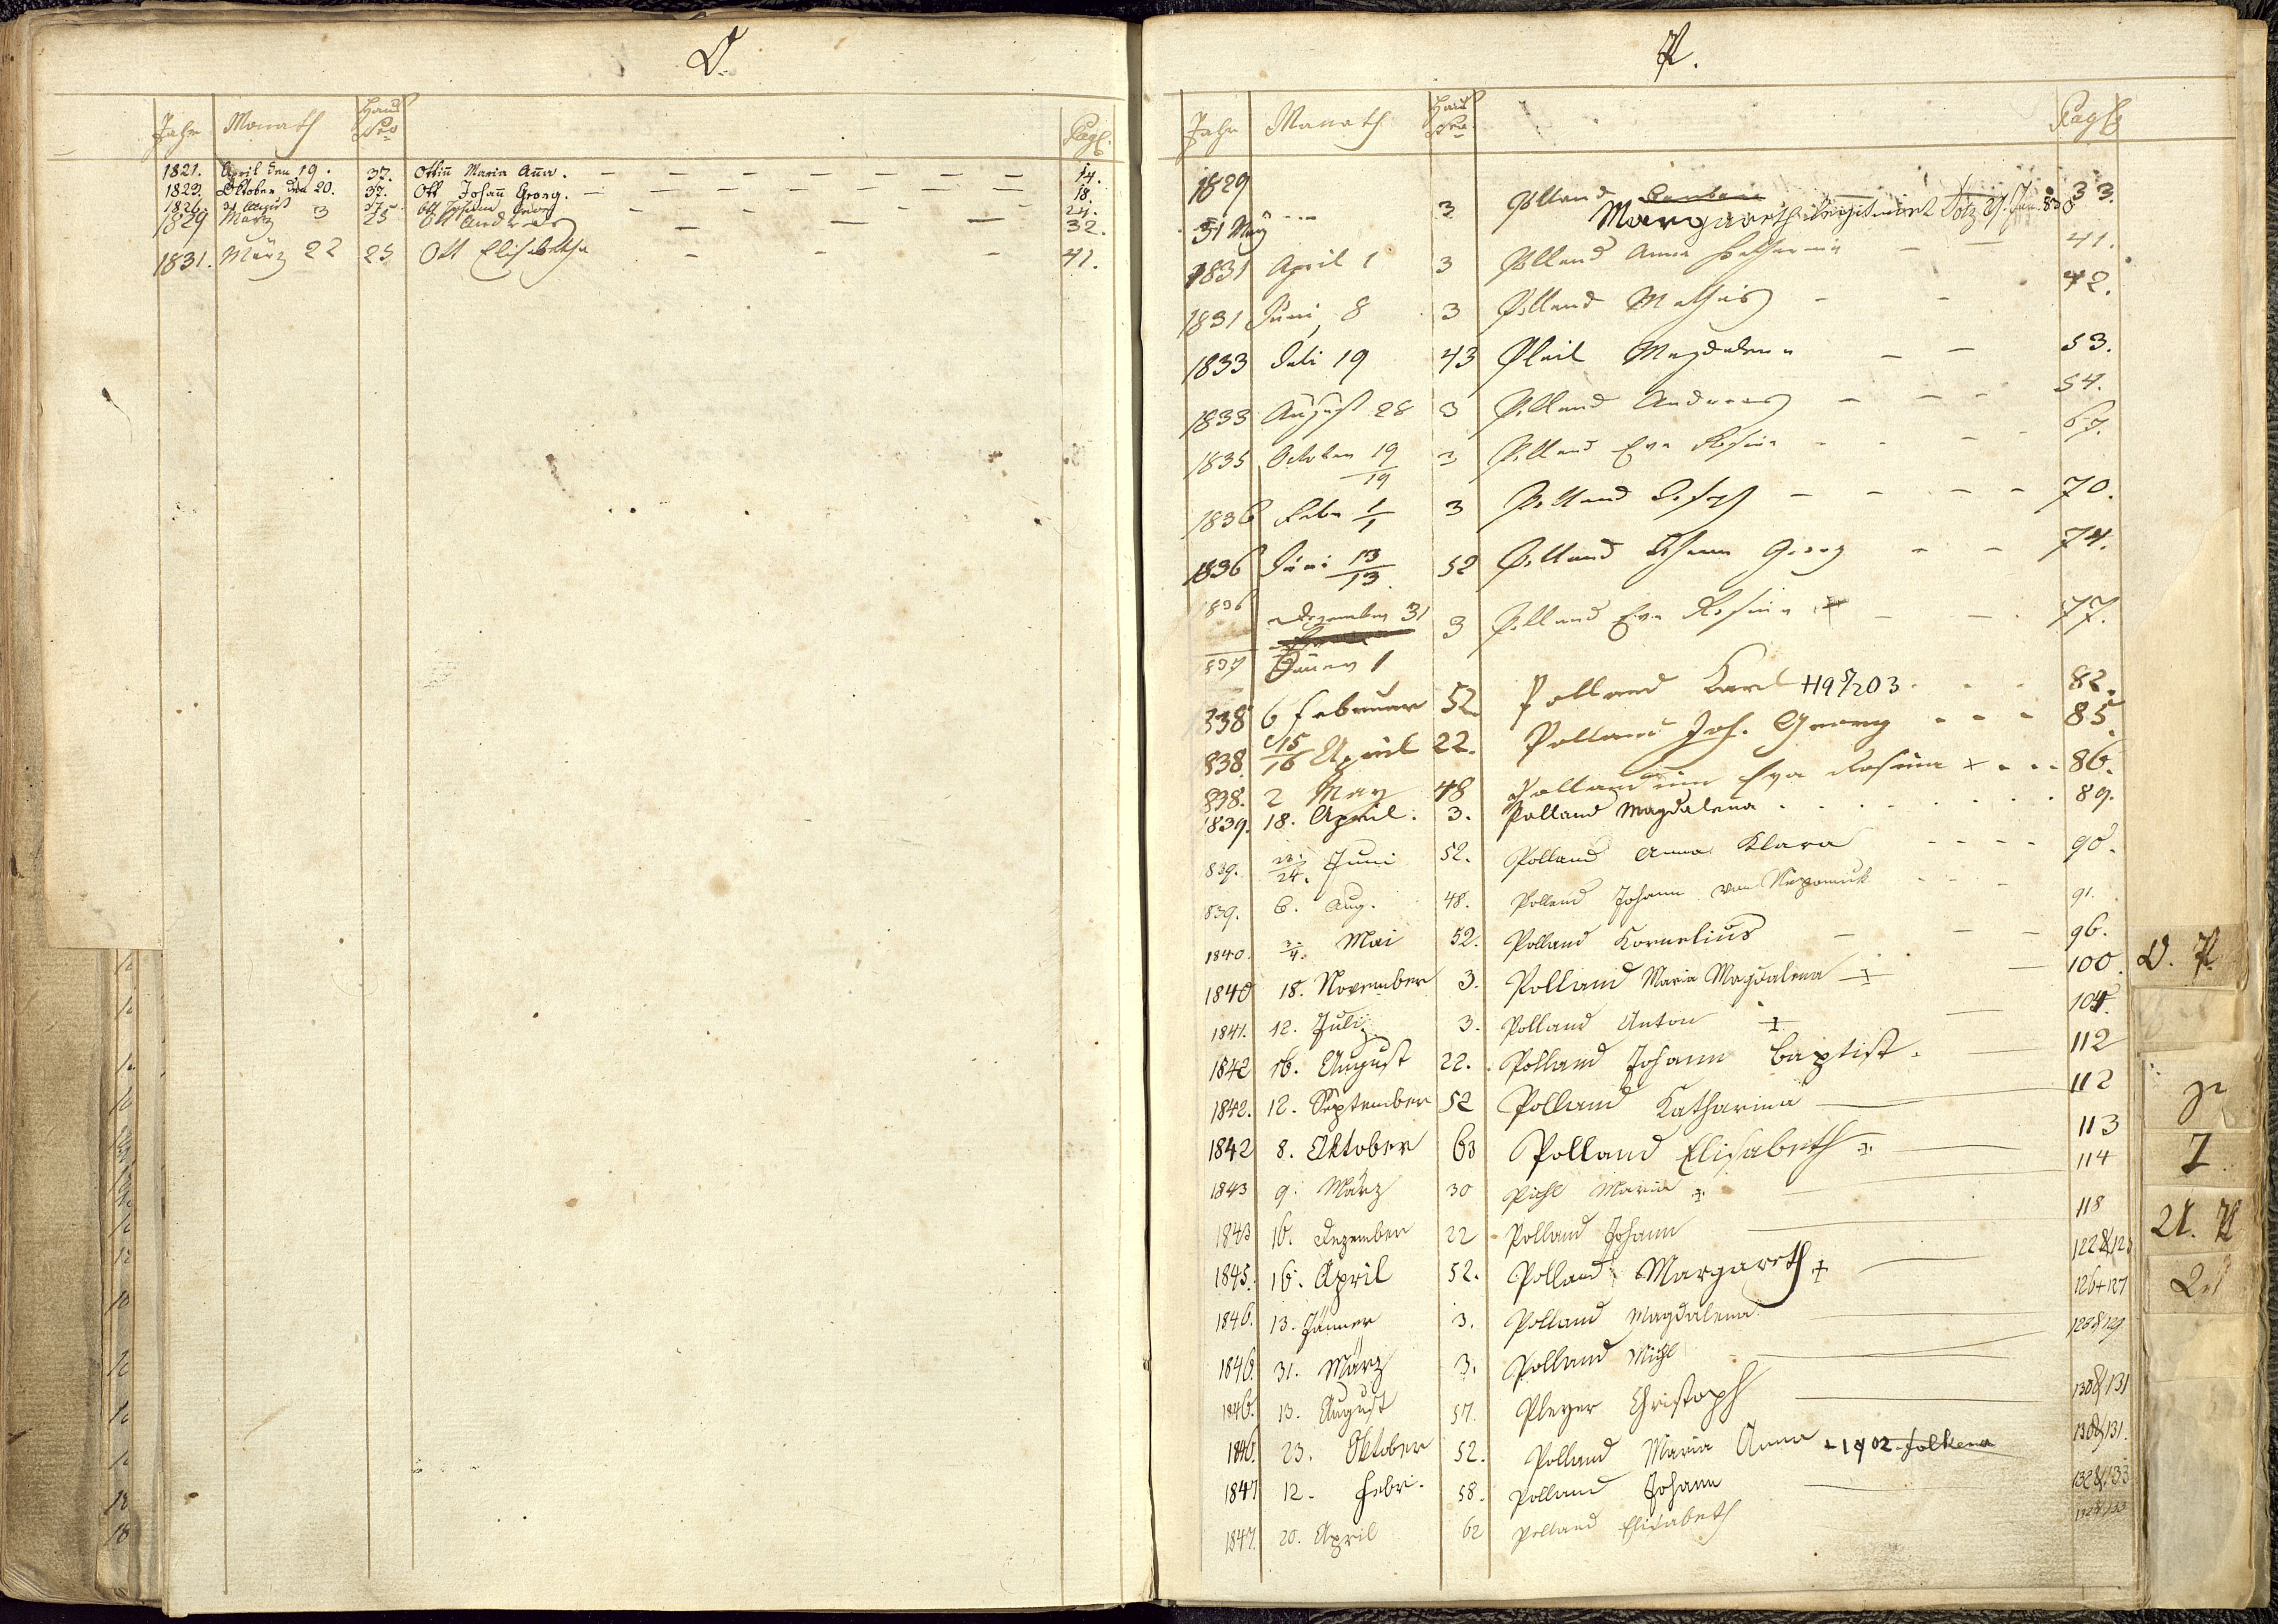 O.
Jahr Monath Haus Nro Pagß.
1821. April den 19. 37. Ottiñ Maria Aña. 14.
1823. Oktober den 20. 37. Ott Johañ Georg. 18.
1826. 31 August 37. Ott Johann Georg 24.
1829 März 3 25 Ott Andreas 32.
1831. März 22 25 Ott Elisabetha 41.
P.
Jahr Monath Haus Nro. Pagß
1829 31 May 3 Polland Margareth 33.
1831 April 1 3 Polland Anna Katharina 41.
1831 Juni 8 3 Polland Mathias 42.
1833 Juli 19 43 Pleil Magdalena 53.
1833 August 28 3 Polland Andreas 54.
1835 October 19/19 3 Polland Eva Rosina 67.
1836 Febr 1/1 3 Polland Joseph 70.
1836 Juni 13/13. 52 Polland Johann Georg 74.
1836 Dezember 31 3 Polland Eva Rosina + 77.
837 Jäner 1
838 6 Februar 52. Polland Karl 82.
838. 15/16 April 22. Polland Joh. Georg 85.
838. 2 May 48 Pollandinn Eva Rosina + 86.
1839. 18. April. 3. Polland Magdalena 89.
839. 23./24. Juni 52. Polland Anna Klara 90.
839. 6. Aug. 48. Polland Johann von Nepomuk 91.
1840. 3./4. Mai 52. Polland Kornelius 96.
1840 18. November 3. Polland Maria Magdalena + 100.
1841. 12. Juli 3. Polland Anton + 104.
1842 16. August 22. Polland Johann Baptist. 112
1842. 12. September 52 Polland Katharina 112
1842 8. Oktober 63 Polland Elisabeth + 113
1843 9. März 30 Pichl Maria + 114
1843 16. Dezember 22 Polland Johann 118
1845. 16. April 52. Polland Margareth + 122&123
1846. 13. Jänner 3. Polland Magdalena 126+127
1846. 31. März 3. Polland Michl 128&129
1846. 13. August 57. Pleyer Christoph 130&131
1846. 23. Oktober 52. Polland Maria Anna +1902 Falkenau 130&131.
1847 12. Febr. 58. Polland Johann 132&133
1847. 20. April 62 Polland Elisabeth 132&133
O. P.